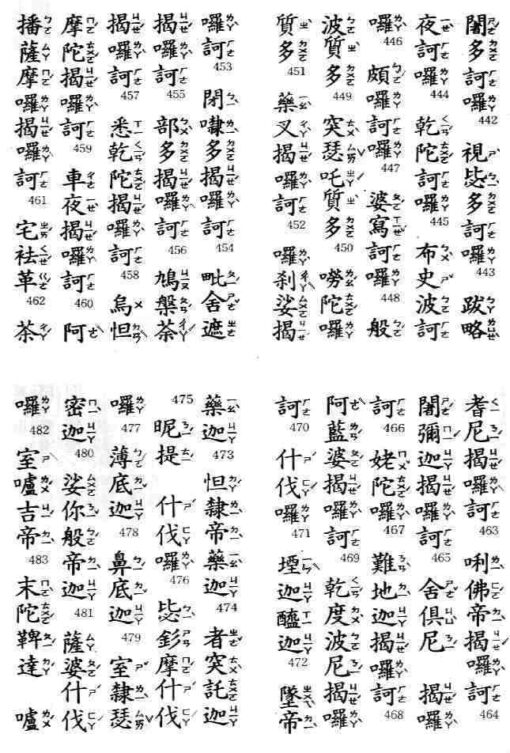 闍多訶囉 442 視毖多訶囉 443 跋略
夜訶囉 444 乾陀訶囉 445 布史波訶
囉 446 頗囉訶囉 447 婆寫囉 448 般
波質多 449 突瑟吒質多 450 嘮陀囉
質多 451 藥叉揭囉訶 452 囉剎娑揭
囉訶 453 閉嚇多揭囉訶 454 毗舍遮
揭囉訶 455 部多揭囉訶 456 鳩槃茶
揭囉訶 457 悉乾陀揭囉訶 458 烏怛
摩陀揭囉訶 459 車夜揭囉訶 460 阿
播薩摩囉揭囉訶 461 宅袪革 462 茶
耆尼揭囉訶 463 唎佛帝揭囉訶 464
闍彌迦揭囉訶 465 舍俱尼揭囉
訶 466 姥陀囉 467 難地迦揭囉訶 468
阿藍婆揭囉訶 469 乾度波尼揭囉
訶 470 什伐囉 471 堙迦醯迦 472 墜帝
藥迦 473 怛隸帝藥迦 474 者突託迦
475 昵提什伐囉 476 毖釤摩什伐
囉 477 薄底迦 478 鼻底迦 479 室隸瑟
密迦 480 娑你般帝迦 481 薩婆什伐
囉 482 室嚧吉帝 483 末陀鞞達嚧